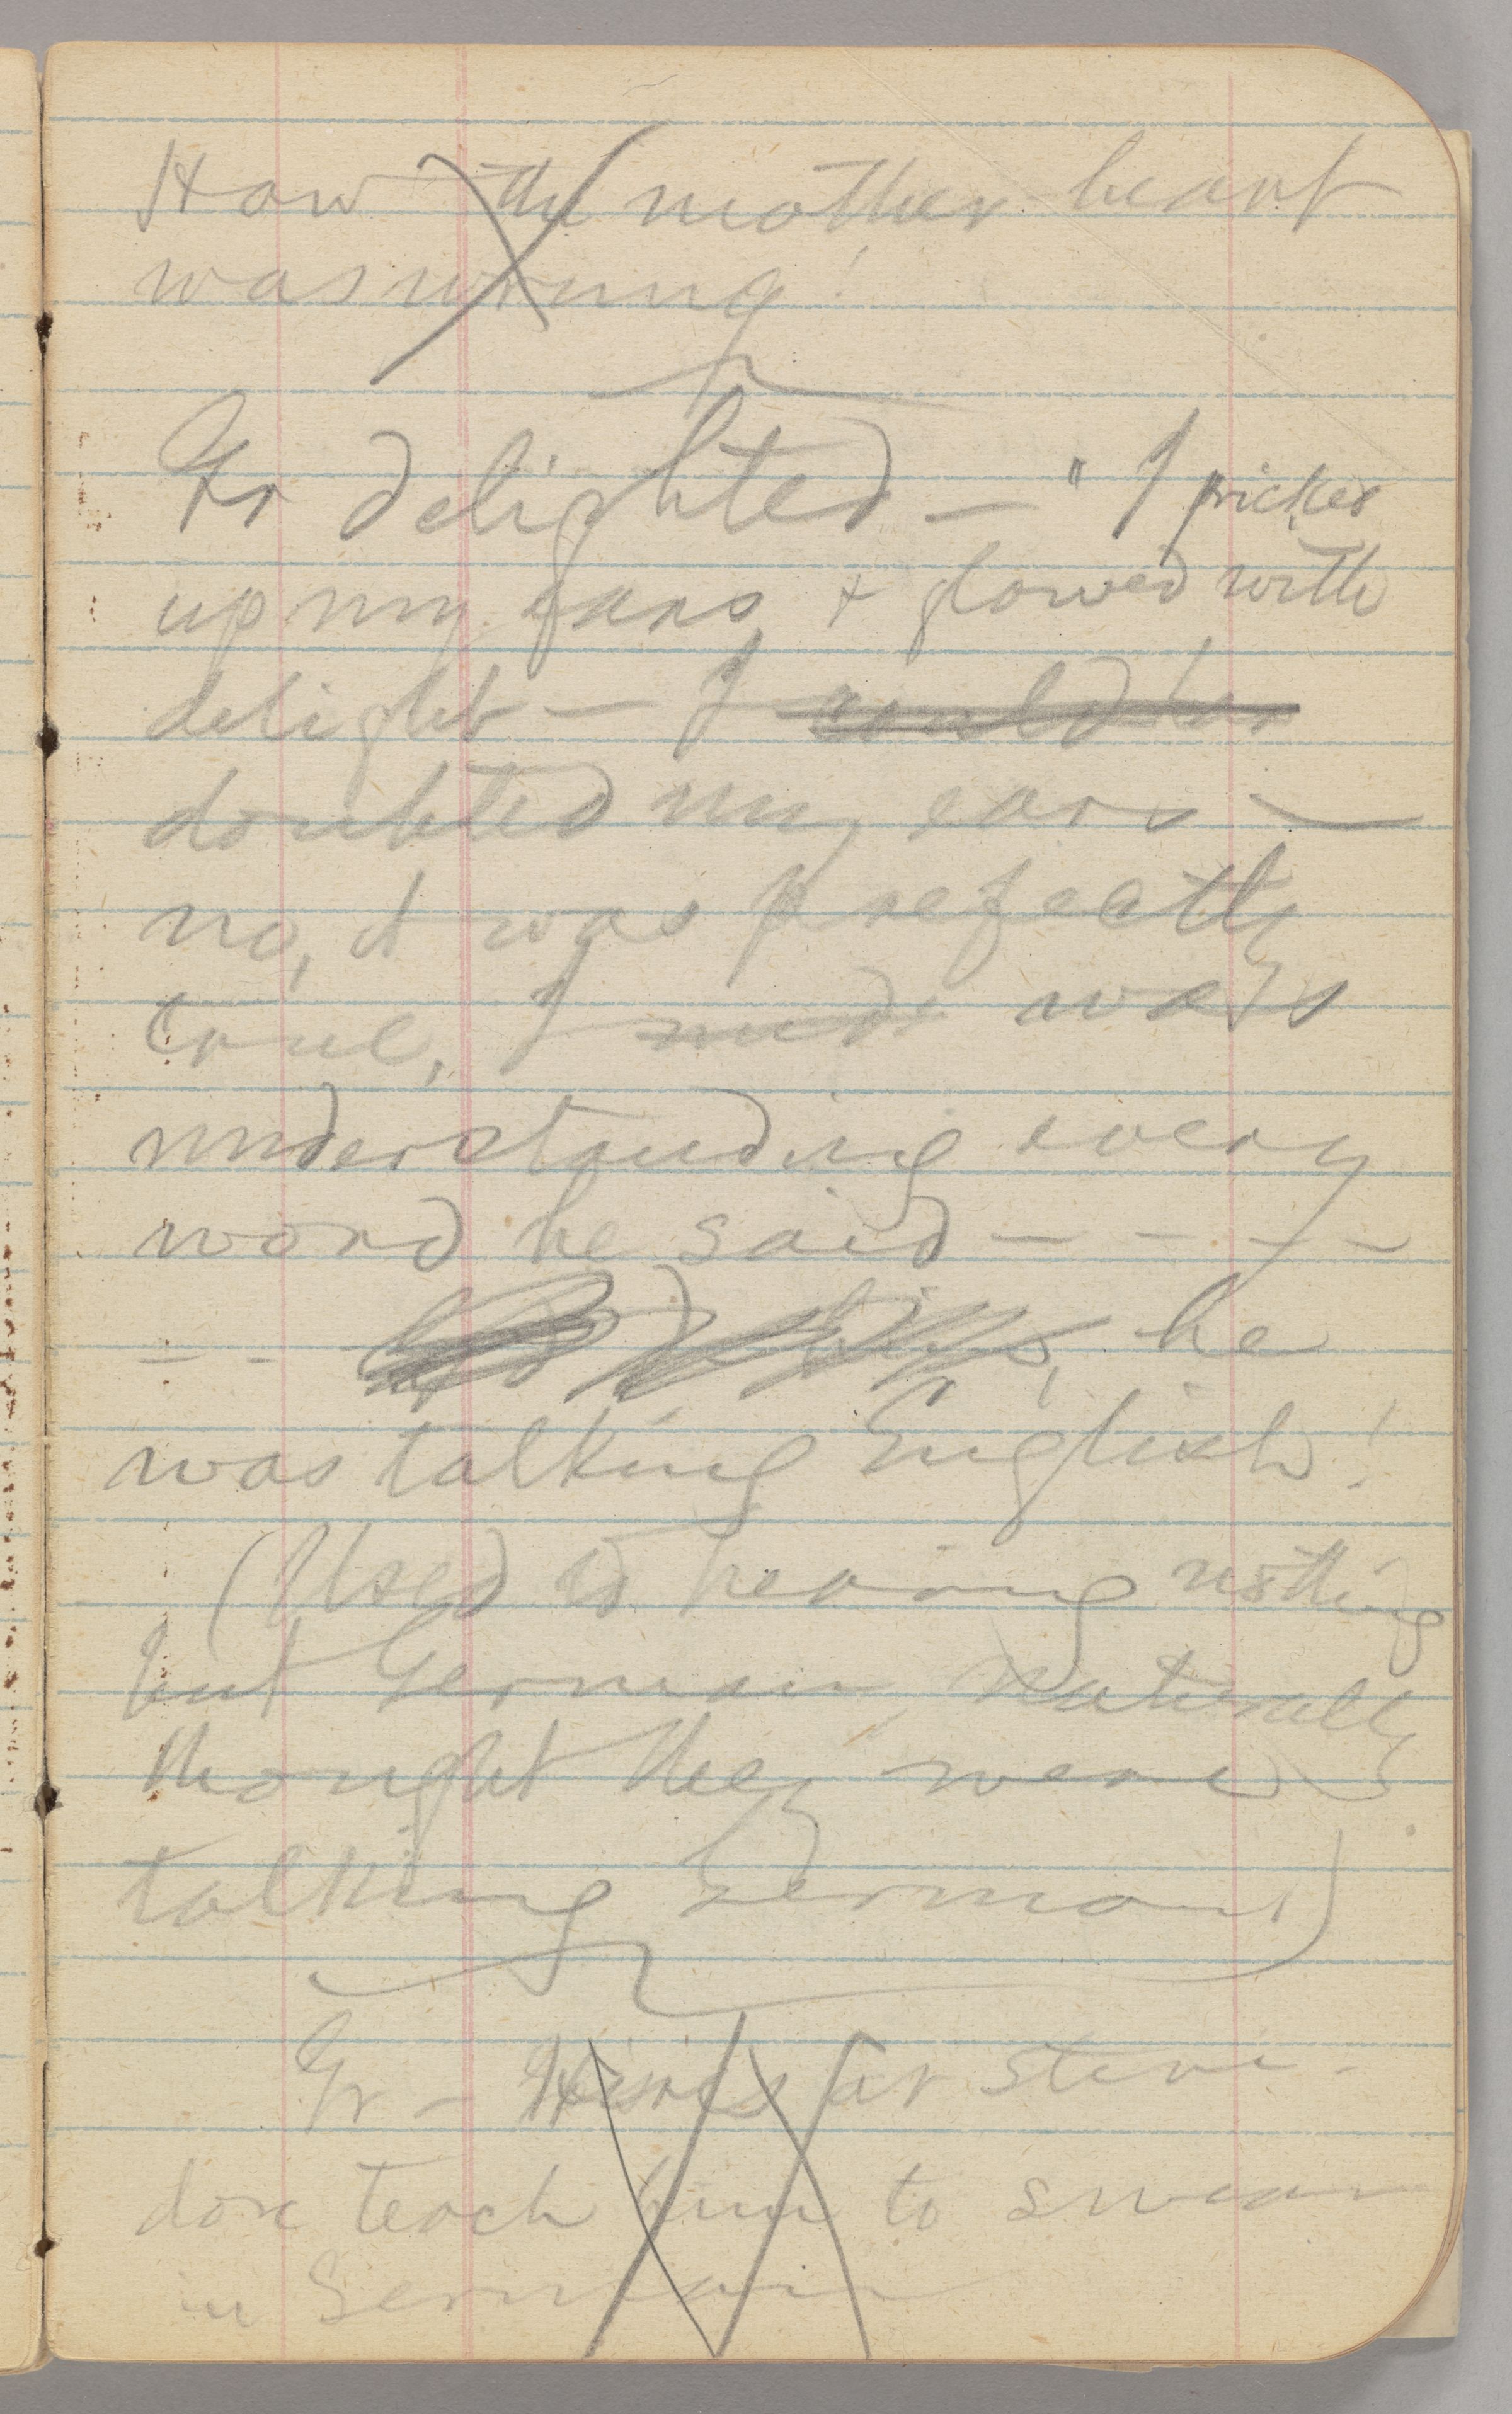 How the mother heart
was wrung!
Gr delighted — "I pricked
up my ears, + glowed with
delight — I could hv
doubted my ears —
no, it was prefectly
true, I was
understanding every
word he said — — — —
— — he
was talking English!
(Used to hearing nothing
but German, naturally
thought they were
talking German)
Gr — Hires far steve-
dore teach him to swear
in German